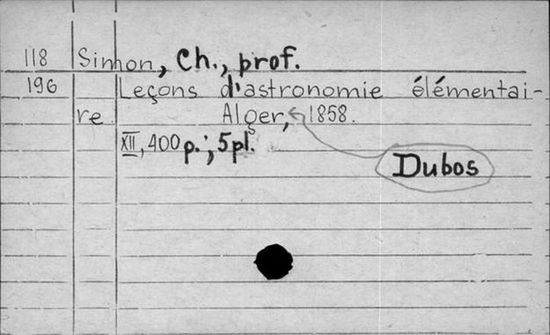 118 Simon, Ch., prof.
196 Leçons d'astronomie élémentai-
re. Alger, 1858.
XII, 400 p.; 5 pl.
Dubos